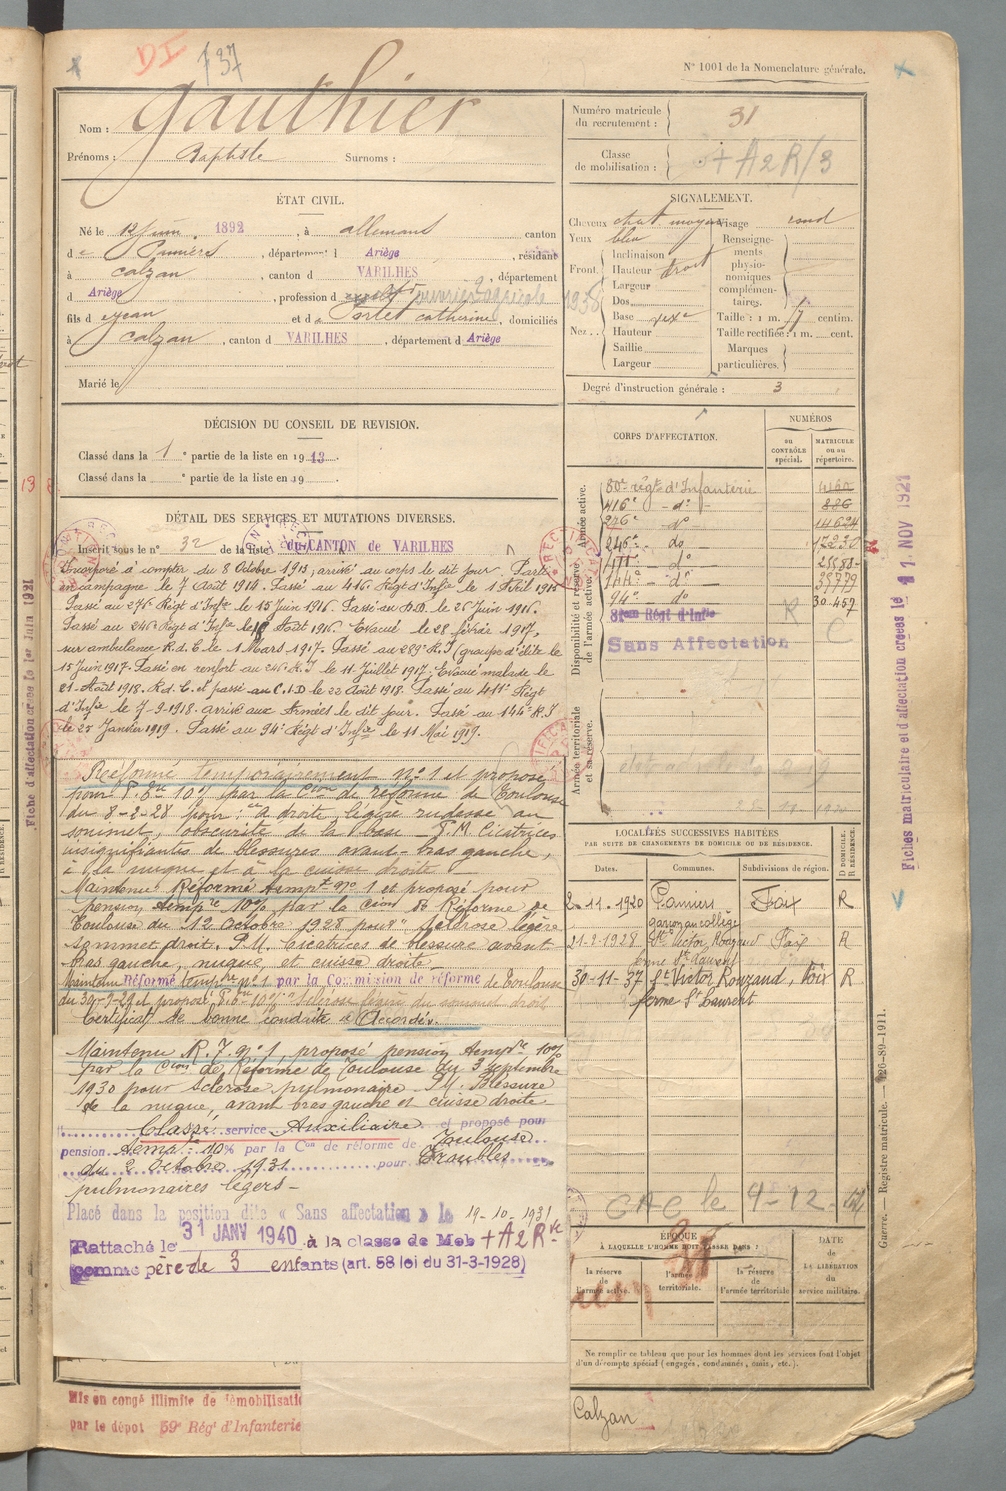 DI 137
N° 1001 de la Nomenclature générale.
Nom : Gauthier
Prénoms : Baptiste Surnoms :
Numéro matricule du recrutement : 31
Classe de mobilisation : + A2R/3
ÉTAT CIVIL.
Né le 12 Juin 1892, à allemans canton
de Pamiers, département d Ariège, résidant
à Calzan, canton d VARILHES, département
d Ariège, profession d ouvrier agricole 1938
fils d Jean et de Portet Catherine, domiciliés
à Calzan, canton d VARILHES, département d Ariège
Marié le
SIGNALEMENT.
Cheveux chat. moyen Visage rond
Yeux bleu
Front. Inclinaison
Hauteur droit
Largeur
Nez. Dos
Base
Hauteur
Saillie
Largeur
Renseignements physionomiques complémentaires.
Taille : 1 m. centim.
Taille rectifiée : 1 m. cent.
Marques particulières.
Degré d'instruction générale : 3
DÉCISION DU CONSEIL DE REVISION.
Classé dans la 1e partie de la liste en 1913.
Classé dans la e partie de la liste en 19
DÉTAIL DES SERVICES ET MUTATIONS DIVERSES.
Inscrit sous le n° 32 de la liste du CANTON de VARILHES
Incorporé à compter du 8 Octobre 1913; arrivé au corps le dit jour. Parti
en campagne le 7 Août 1914. Passé au 416e Régt d'Infie le 1 Avril 1915
Passé au 276e Régt d'Infie le 15 Juin 1916. Passé au D.D. le 26 Juin 1916.
Passé au 246e Régt d'Infie le 18 Août 1916. Evacué le 28 février 1917,
sur ambulance R.d.C le 1 Mars 1917. Passé au 289e R.I (groupe d'élite le
15 Juin 1917. Passé en renfort au 246 R.I le 11 Juillet 1917. Evacué malade le
21 Août 1918. R.d.C. et passé au C.I.D le 22 Août 1918. Passé au 411e Régt
d'Infie le 7-9-1918. arrivé aux Armées le dit jour. Passé au 144e R.I
le 25 Janvier 1919. Passé au 94e Régt d'Infie le 11 Mai 1919.
Réformé temporairement n° 1 et proposé
pour P. 10% par la Cion de réforme de Toulouse
du 8-2-28 pour : à droite légère rudesse au
sommet, obscurité de la base - P.M. Cicatrices
insignifiantes de blessures avant-bras gauche,
à la nuque et à la cuisse droite
Maintenu Réformé tempre n° 1 et proposé pour
pension tempre 10% par la Cion de Réforme de
Toulouse du 12 Octobre 1928 pour "Sclérose légère
sommet droit. P.M. Cicatrices de blessure avant
bras gauche, nuque, et cuisse droite.
Maintenu Réformé tempre n° 1 par la Commission de réforme de Toulouse
du 30-9-29 et proposé 10% "Sclérose légère du sommet droit
Certificat de bonne conduite "Accordé".
Maintenu R.T. n° 1, proposé pension tempre 10%
par la Cion de Réforme de Toulouse du 3 septembre
1930 pour sclérose pulmonaire P.M. Blessure
de la nuque, avant bras gauche et cuisse droite.
Classé service Auxiliaire et proposé pour
pension temp. 10% par la Con de réforme de Toulouse
du 2 Octobre 1931 pour Troubles
pulmonaires légers -
Placé dans la position dite « Sans affectation » le 19-10-1931
Rattaché le 31 JANV 1940 à la classe de Mob + A2R
comme père de 3 enfants (art. 58 loi du 31-3-1928)
Mis en congé illimité de démobilisati
par le dépôt 59e Régt d'Infanterie
CORPS D'AFFECTATION.
NUMÉROS
au CONTRÔLE spécial.
MATRICULE ou au répertoire.
Armée active.
Disponibilité et réserve de l'armée active.
Armée territoriale et sa réserve.
80e régt d'Infanterie
416e - do - 886
276e - do 14624
246e - do 17230
411e - do
144e - do 35779
94e - do 30.457
Régt d'Infie R
Sans Affectation C
LOCALITÉS SUCCESSIVES HABITÉES
PAR SUITE DE CHANGEMENTS DE DOMICILE OU DE RÉSIDENCE.
Dates. Communes. Subdivisions de région. D DOMICILE. R RÉSIDENCE.
2-11-1920 Pamiers Foix R
garçon au collège
21-2-1928 St Victor, Rouzaud Foix R
ferme St Laurent
30-11-37 St Victor Rouzaud, Foix R
ferme St Laurent
CAC le 9-12-
ÉPOQUE
À LAQUELLE L'HOMME DOIT PASSER DANS :
DATE de LA LIBÉRATION du service militaire.
la réserve de l'armée active.
l'armée territoriale.
la réserve de l'armée territoriale
Ne remplir ce tableau que pour les hommes dont les services font l'objet
d'un décompte spécial (engagés, condamnés, omis, etc.).
Calzan
Fiche d'affectation créée le 1er Juin 1921
Fiches matriculaire et d'affectation créées le 11 NOV 1921
Guerre. — Registre matricule. — 126-89-1911.